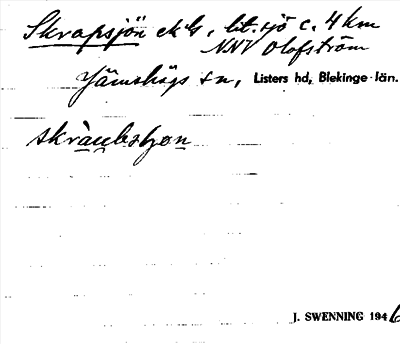 Skrapsjön ek bl, lit. sjö c. 4 km
NNV Olofström
Jämshögs sn, Listers hd, Blekinge län.
skràu̯bshon
J. SWENNING 1946